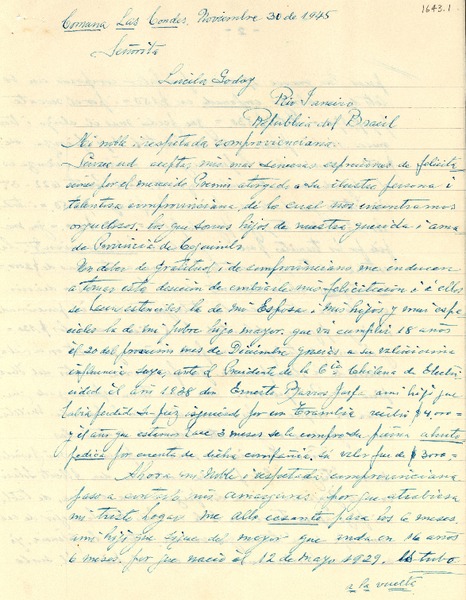 1643.1
Comuna Las Condes, Noviembre 30 de 1945
Señorita
Lucila Godoy
Rio Janeiro
Republica del Brasil
Mi noble i respetada comprovinciana.
ud acepte, mis mas sinceras espreciones de felicita
ciones por el merecido Premio otorgado a su ilustre persona i
talentosa comprovinciana, de lo cual nos encontramos
orgullosos, los que somos hijos de nuestra querida i amada
Provincia de Coquimbo.
Un deber de Gratitud, i de comprovinciano, me inducen
a tomar esta desición de embiarle mis felicitación i a ellas
se hacen estencibles la de mi Esposa i mis hijos, y mas espe
ciales la de mi pobre hijo mayor que va cumplir 18 años
el 20 del proccimo mes de Diciembre gracias a su valiocicima
influencia suya, ante el Presidente de la Cia Chilena de Electri
cidad el año 1938 don Ernesto Barros Jarpa, a mi hijo que
habia perdido su piez isquierdo por un Trambia recibió $4.000
i el año que estamos hace 3 meses se le compro su pierna ahorto
pedica por cuenta de dicha compañia, su valor fue de $3.000=
Ahora mi Noble i respetada comprovinciana
paso a contarle mis amarguras por que atrabiesa
mi triste hogar me allo cesante para los 6 meses.
a mi hijo que sigue del mayor que anda en 16 años
6 meses. por que nació el 12 de mayo 1929. tubo
a la vuelta